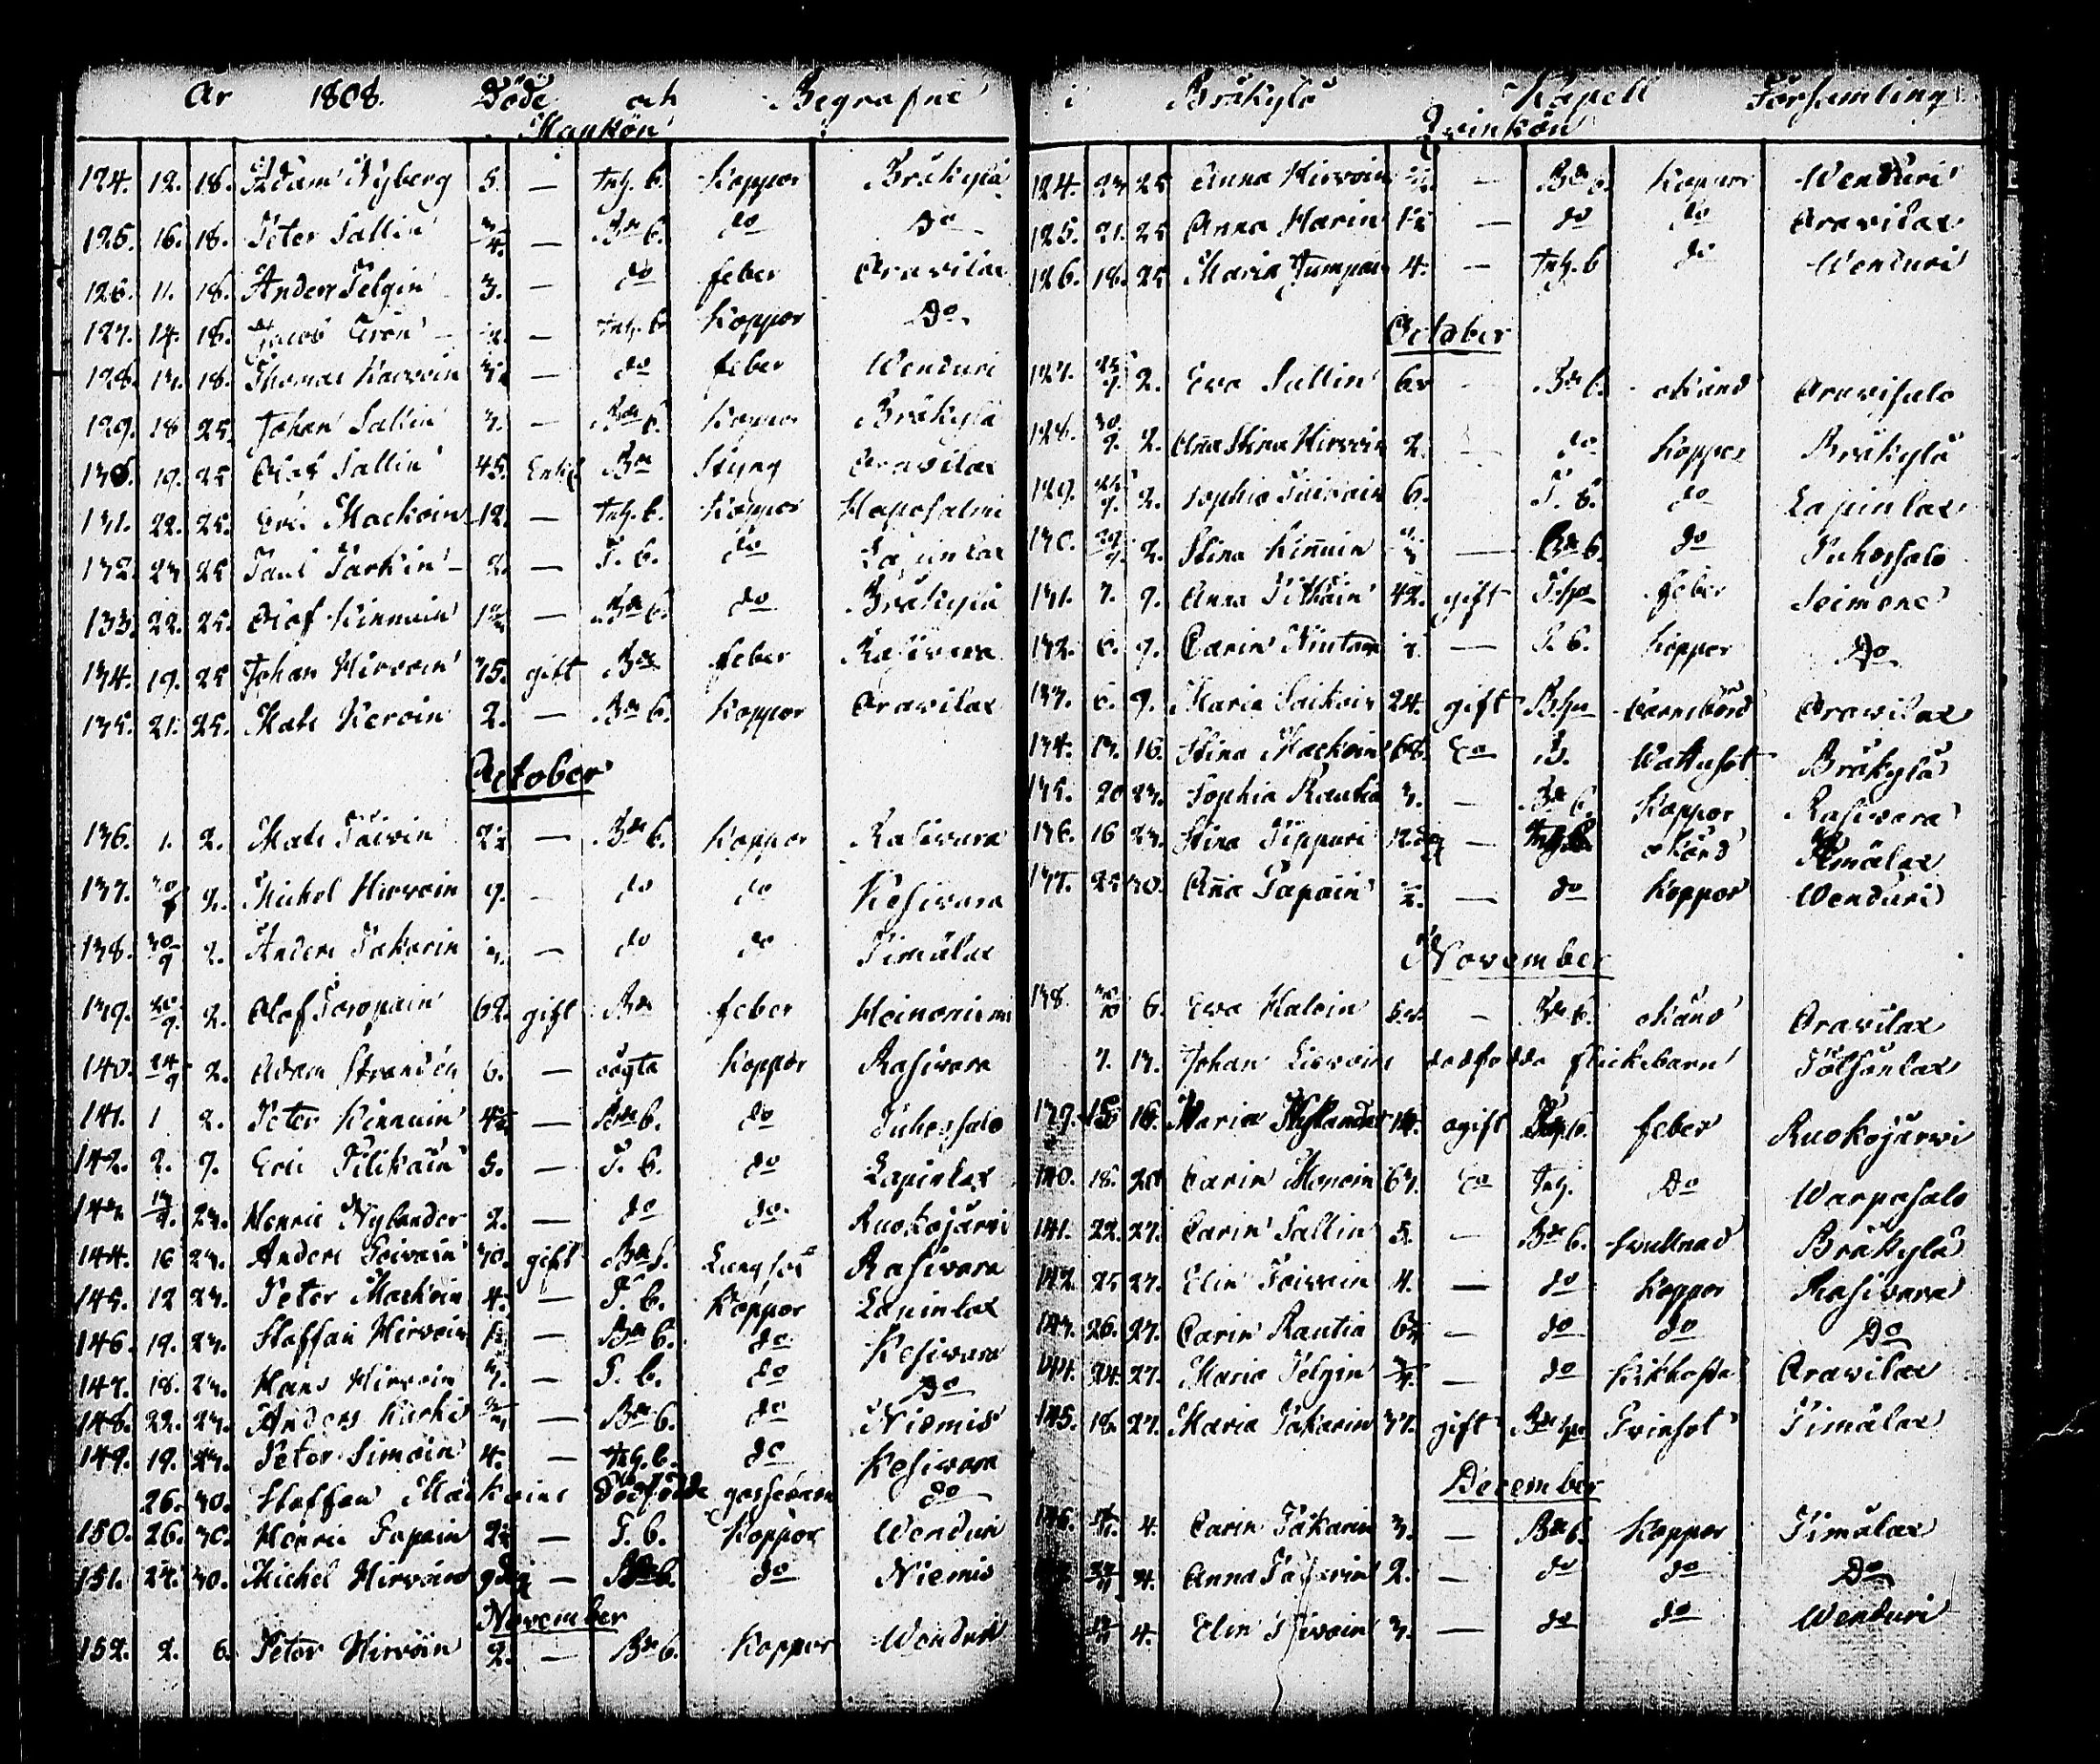 År 1808. Döde och Begrafne
Mankön
124. 12. 18. Adam Nyberg 5. — Inh. b. Koppor Bräkylä
125. 16. 18. Peter Sallin 3/4. — Bde b. do Do
126. 11. 18. Anders Pelgin 3. — do feber Oravilax
127. 14. 18. Jacob Grön — Inh. b. Koppor Do.
128. 13. 18. Thomas — do feber Wenduri
129. 18 25. Johan Sallin 3. — Bde b. Koppor Bräkylä
130. 19. 25 Olof Sallin 45. Enkl. Bde Styng Oravilax
131. 22. 25. Eric Mackoin 12. — Inh. b. Koppor Haposalmi
132. 23 25 Paul Parkin — 2. — T. b. do Lapinlax
133. 22. 25. Olof Kinnuin — Bde b. do Bräkylä
134. 19. 25 Johan Hirvoin 75. gift Bde feber Rasivara
135. 21. 25. Mats Kervin 2. — Bde b. Koppor Oravilax
October
136. 1. 2. Mats Toivin — Bde b. Koppor Rasivara
137. 30/9 2. Michel Hirvoin 9. — do do Kesivara
138. 30/9 2. Anders Pakarin — do do Pimälax
139. 2. Olof Toropain 62. gift Bde feber Heinoniemi
140. 24/9 2. Adam Strandén 6. — oägta Koppor Rasivara
141. 1 2. Peter Kinnuin — Bde b. do Puhossalo
142. 2. 9. Eric Pilikain 5. — T. b. do Lapinlax
143. 23. Henric Nylander 2. — do do Ruokojärvi
144. 16 23. Anders Toivain 70. gift Bde Lungsot Rasivara
145. 12 23. Peter Mackoin 4. — T. b. Koppor Lapinlax
146. 19. 23. Staffan Hirvoin — Bde b. do Kesivara
147. 18. 23. Hans Hirvoin 3. — T. b. do Do
148. 22. 23. Anders Kurki — Bde b. do Niemis
149. 19. 23. Peter Simoin 4. — Inh. b. do Kesivara
26. 30. Staffan dödfödde gossebarn do
150. 26. 30. Henric Papain — T. b. Koppor Wenduri
151. 27. 30. Michel Hirvoin — Bde b. do Niemis
November
152. 2. 6. Peter Hirvoin 2. — Bde b. Koppor Wenduri
i Bräkylä Kapell Församling
Qvinkön
124. 23 25 Anna Hirvoin — Bde b. Koppor Wenduri
125. 21. 25 Anna Harin — do do Oravilax
126. 18. 25 Maria 4. — Inh. b do Wenduri
October
127. 2. Eva Sallin — Bde b. okänd Oravisalo
128. 30/9. 2. Aña Stina Hirvoin 2. — do Koppor Bräkylä
129. 2. Sophia Toivain 6. T. b. do Lapinlax
130. 2. Stina Kiñuin — Bde b. do Puhossalo
131. 7. 9. Anna Pitkäin 42. gift feber Seimene
132. 6. 9. Carin — T. b. Koppor Do
133. 6. 9. Maria 24. gift Barnsbörd Oravilax
134. 13. 16. Stina Mackoin 68. Do Wattusot Bräkylä
135. 20 23. Sophia Rautia 3. — Bde b. Koppor Rasivara
136. 16 23. Stina Tippuri — okänd Pimälax
137. 25 30. Aña Papain — do Koppor Wenduri
November
138. 6. Eva — Bde b. okänd Oravilax
7. 13. Johan dödfödda flickebarn
139. 15 16. Maria Nylander 14. ogift feber Ruokojärvi
140. 18. 20 Carin 63. Do Inh. Do Warpasalo
141. 22. 27. Carin Sallin — Bde b. svullnad Bräkylä
142. 25 27. Elin Toivain 4. — do Koppor Rasivara
143. 26. 27. Carin Rautia — do do Do
144. 24. 27. Maria Pelgin — do Kikhosta Oravilax
145. 18. 27. Maria Pakarin 37. gift Tvinsot Pimälax
December
146. 4. Carin Pakarin 3. — Bde b. Koppor Pimälax
4. Anna Pakarin 2. — do do Do
4. Elin Toivain 3. — do do Wenduri